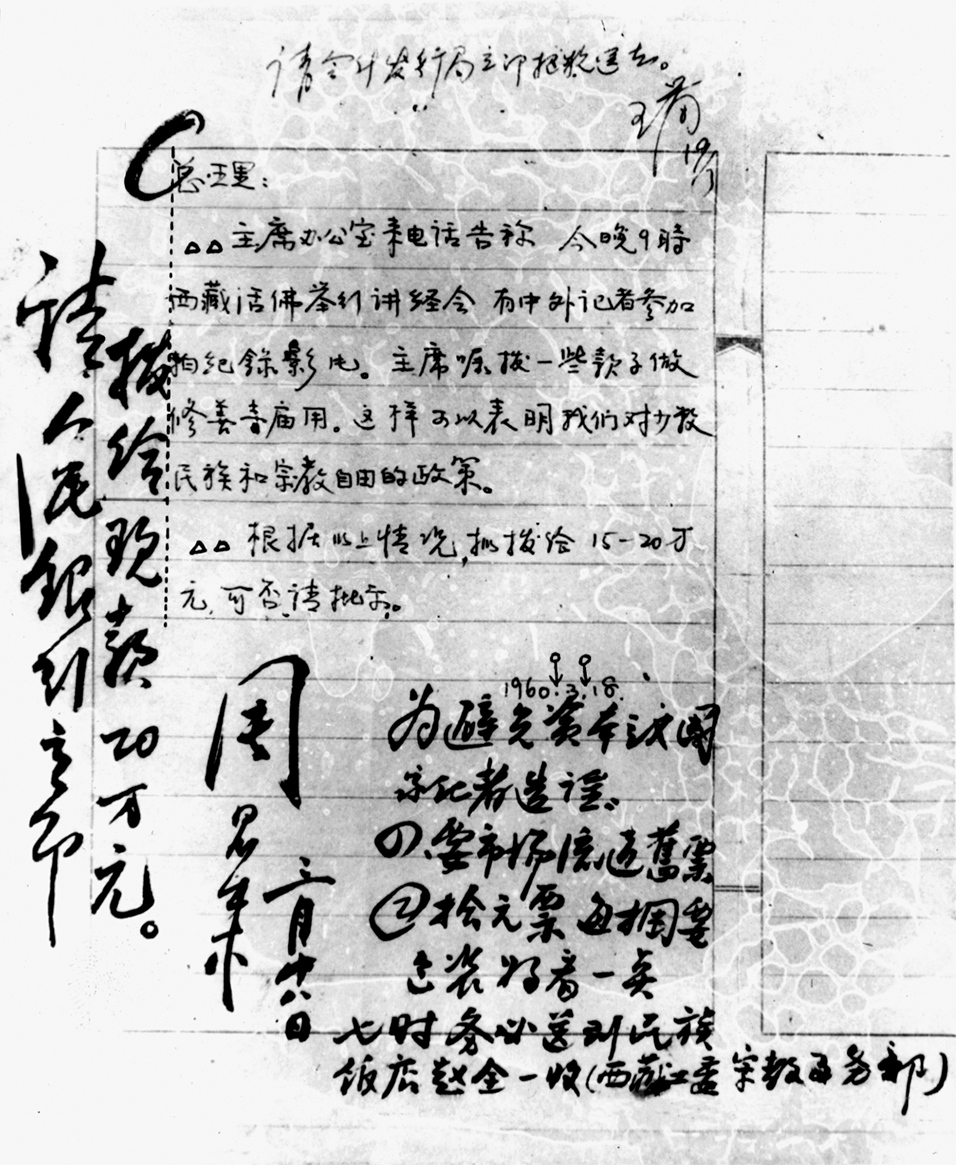 请会计发行局立即拨款送去。
总理：
△△主席办公室来电话告称 今晚9時
西藏活佛举行讲经会 有中外记者参加
拍纪錄影片。主席嘱拨一些款子做
修善寺庙用。这样可以表明我们对少数
民族和宗教自由的政策。
△△根据以上情况，拟拨给15-20万
元，可否，请批示。
请人民銀行立即
拨给现款20万元。
周恩来
三月十八日
1960.3.18.
为避免资本主义国
家记者造谣。
①要市场流通舊票
②拾元票 每捆要
包装好看一点
七时务必送到民族
饭店赵全一收（西藏工委宗教事务部）